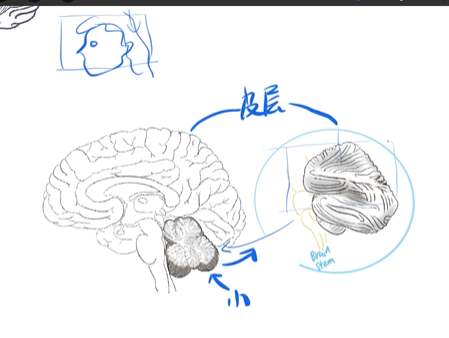 皮层
Brain
stem
小